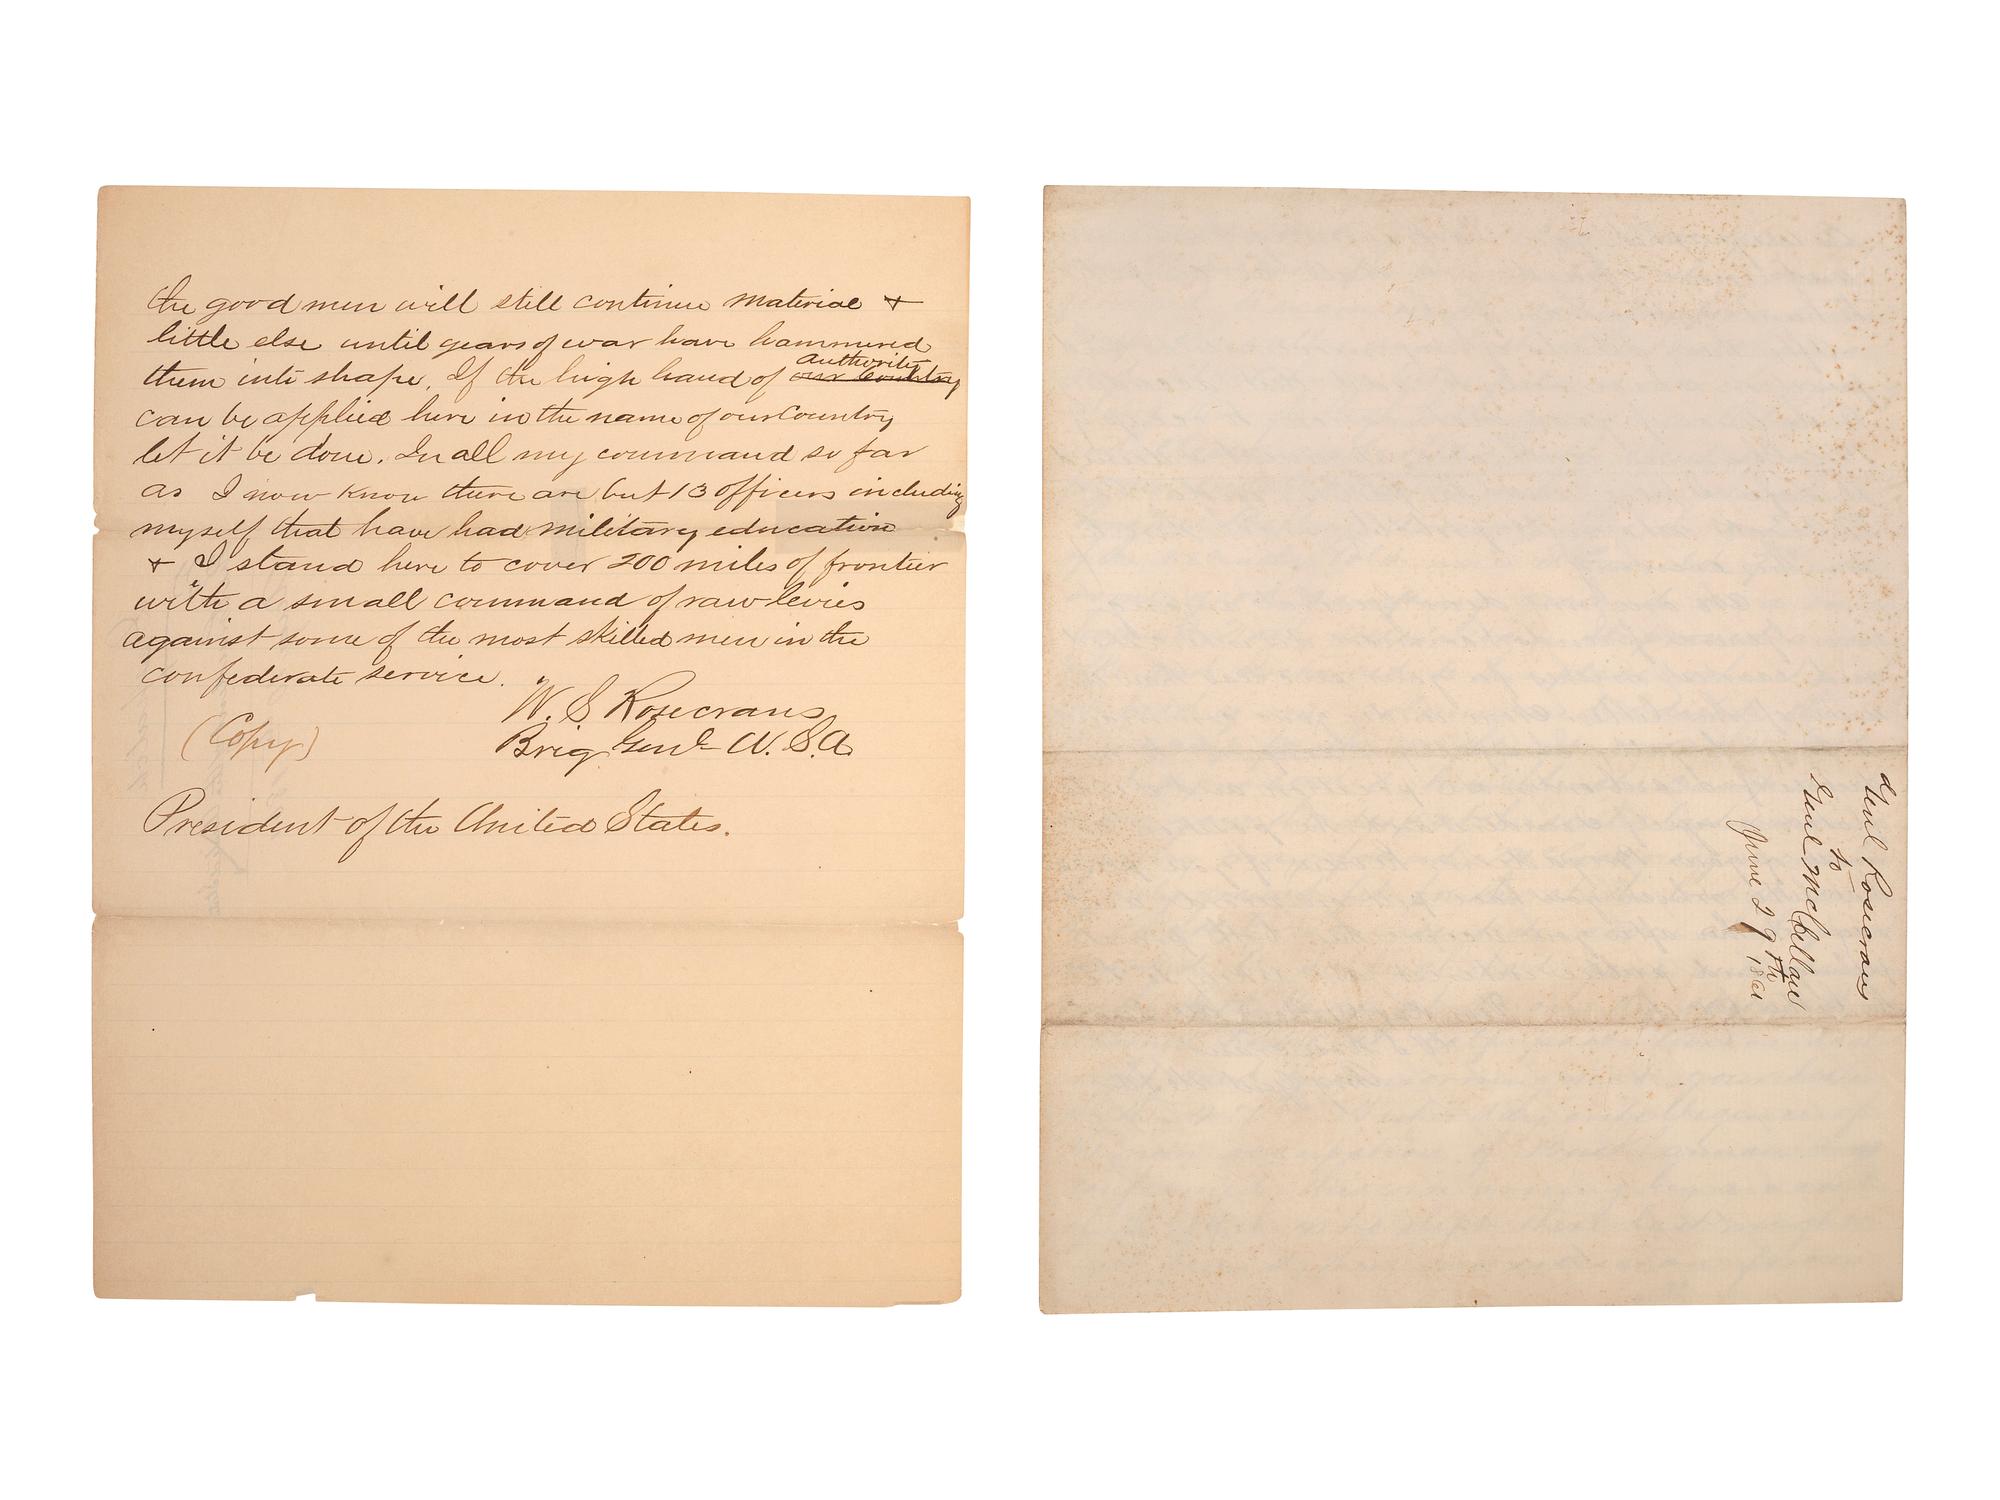 the good men will still continue material &
little else until years of war have hammered
them into shape. If the high hand of our Country Authority
can be applied here in the name of our Country
let it be done. In all my command so far
as I now know there are but 13 officers including
myself that have had military education
& I stand here to cover 200 miles of frontier
with a small command of raw levies
against some of the most skilled men in the
confederate service.
W. S. Rosecrans
(Copy)
Brig Genl U.S.A
President of the United States.
Genl Rosecrans
to
Genl McClellan
June 29th 1861